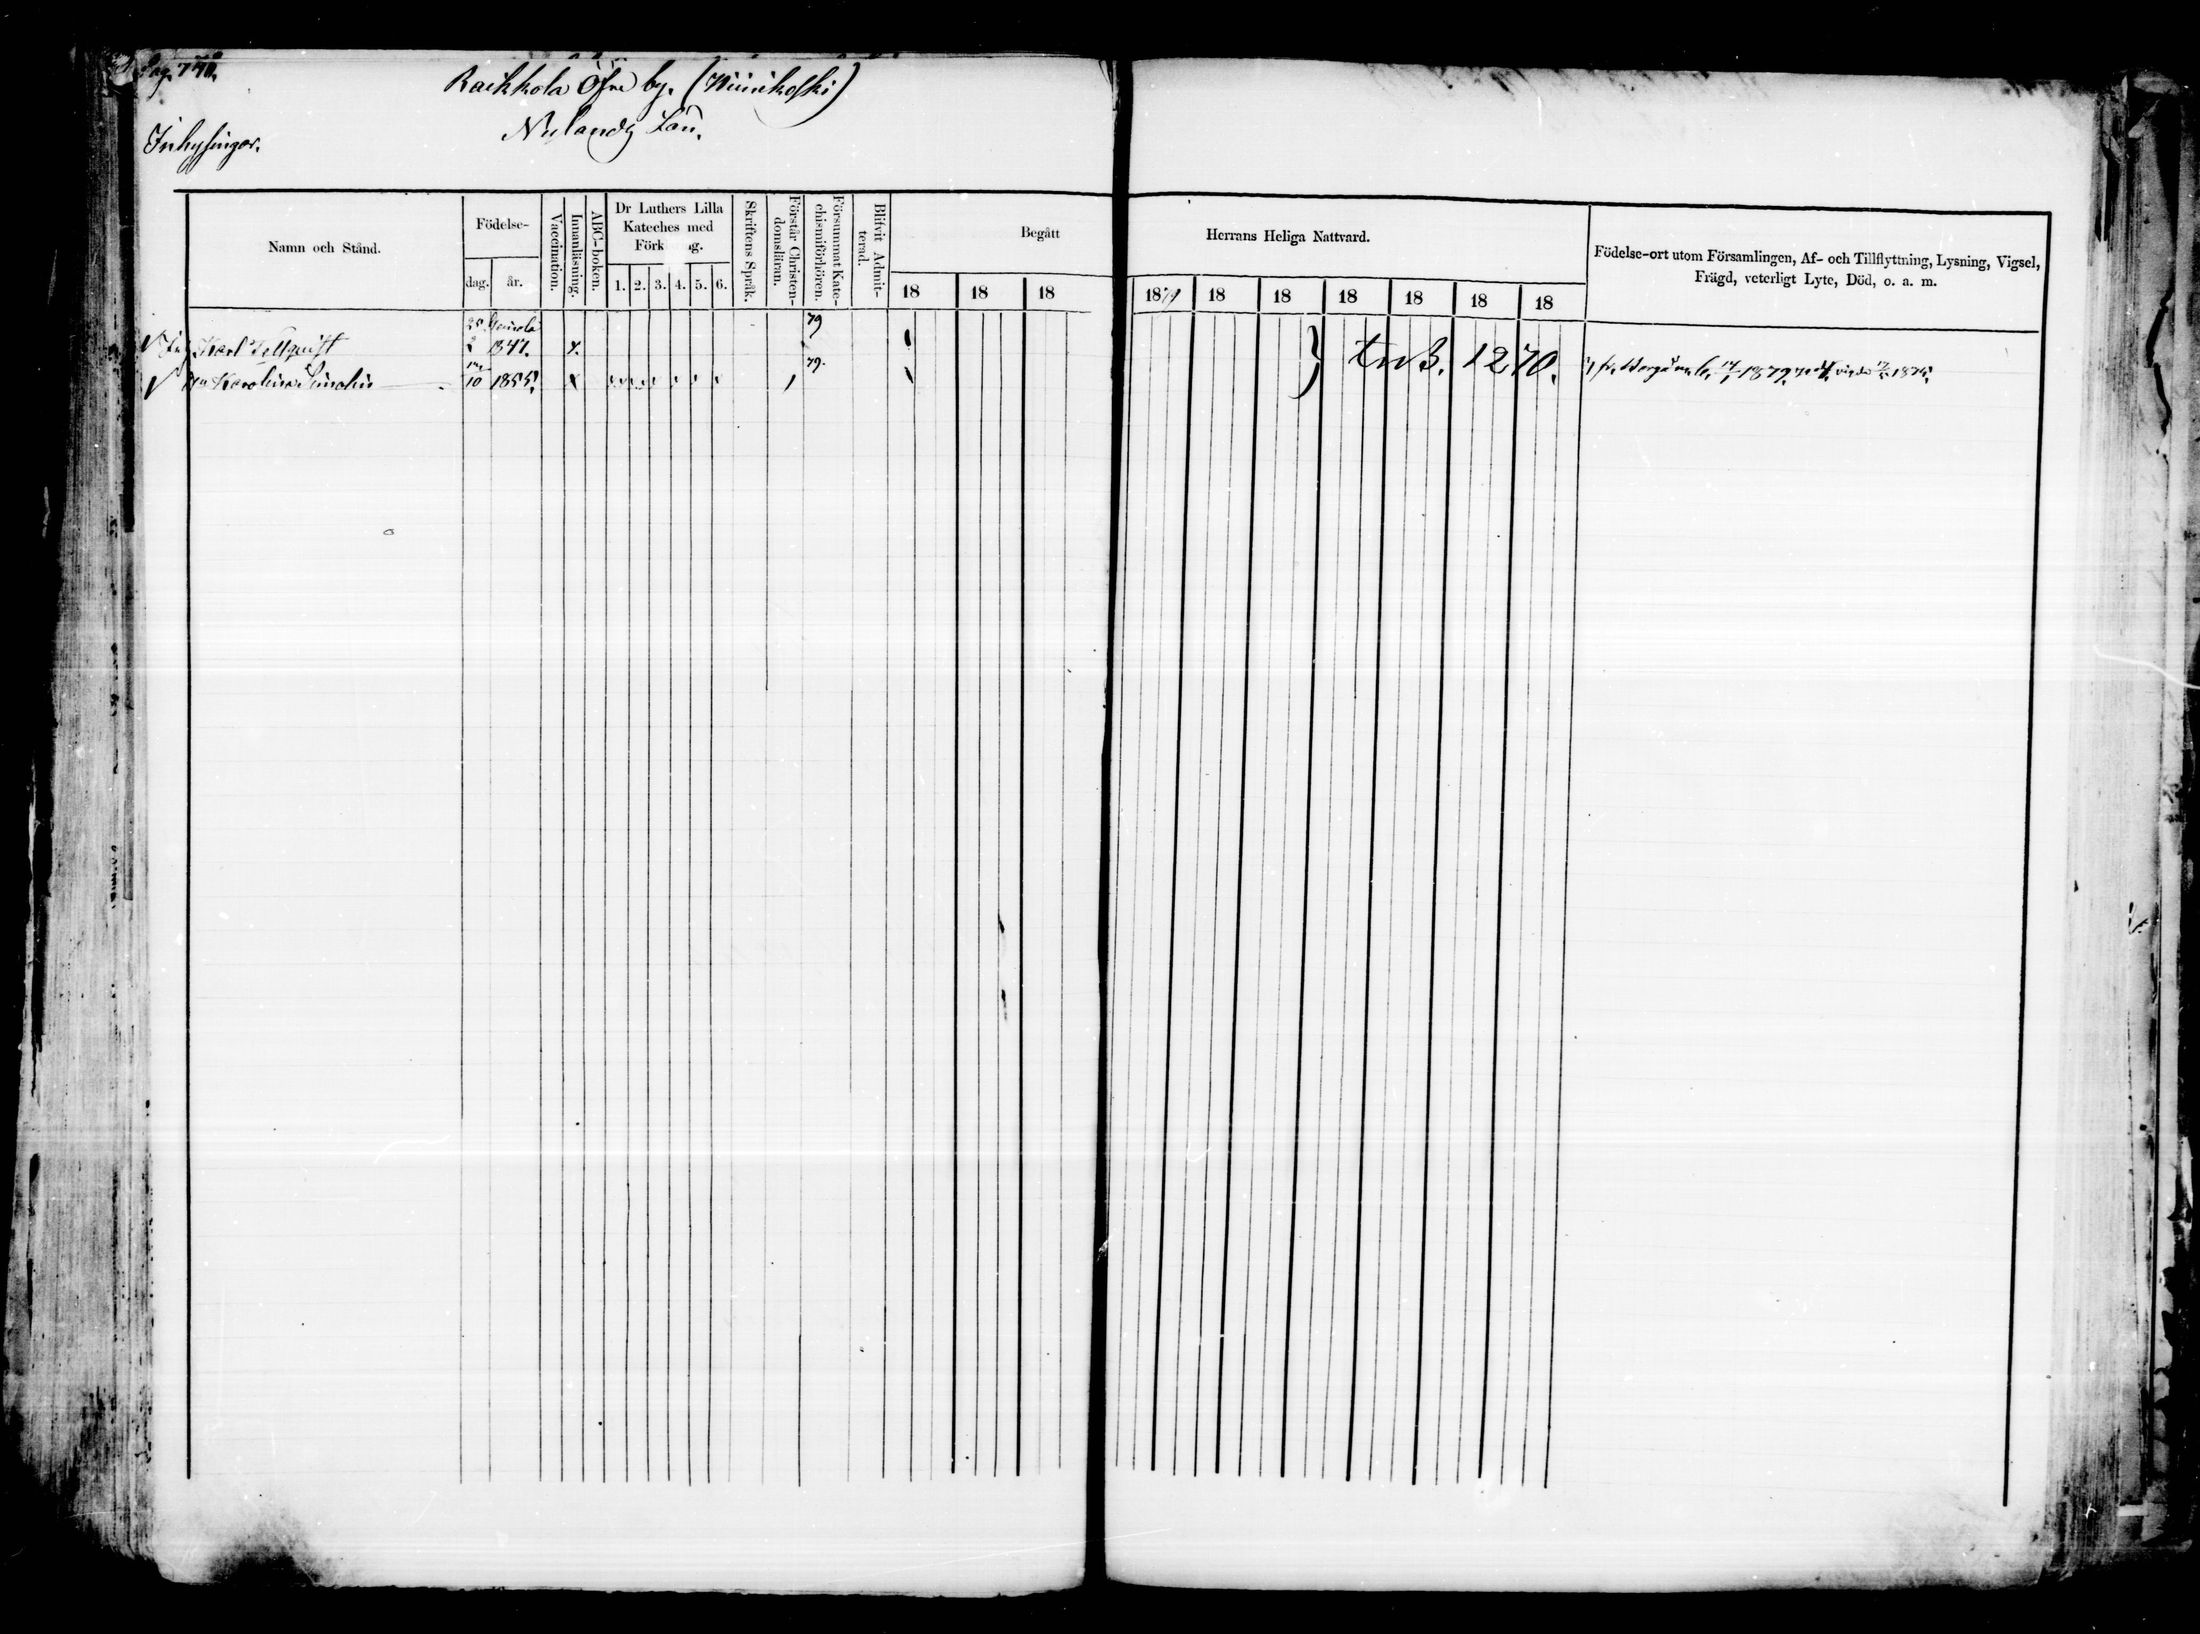 Pag. 740.
Raikkola Öfre by. (Niinikoski)
Nylands Län.
Inhysingar.
Namn och Stånd.
Födelse-
dag. år.
Vaccination.
Innanläsning.
ABC-boken.
Dr Luthers Lilla
Kateches med
Förk ng.
1. 2. 3. 4. 5. 6.
Skriftens Språk.
Förstår Christen-
domsläran.
Försummat Kate-
chismiförhören.
Blifvit Admit-
terad.
Begått
18 18 18
Herrans Heliga Nattvard.
1879 18 18 18 18 18 18
Födelse-ort utom Församlingen, Af- och Tillflyttning, Lysning, Vigsel,
Frägd, veterligt Lyte, Död, o. a. m.
Karl 25/2 1847. x. 79
Hu Karolina 10 1855. x 79.
1270.
fr. Borgå 1879 1875.